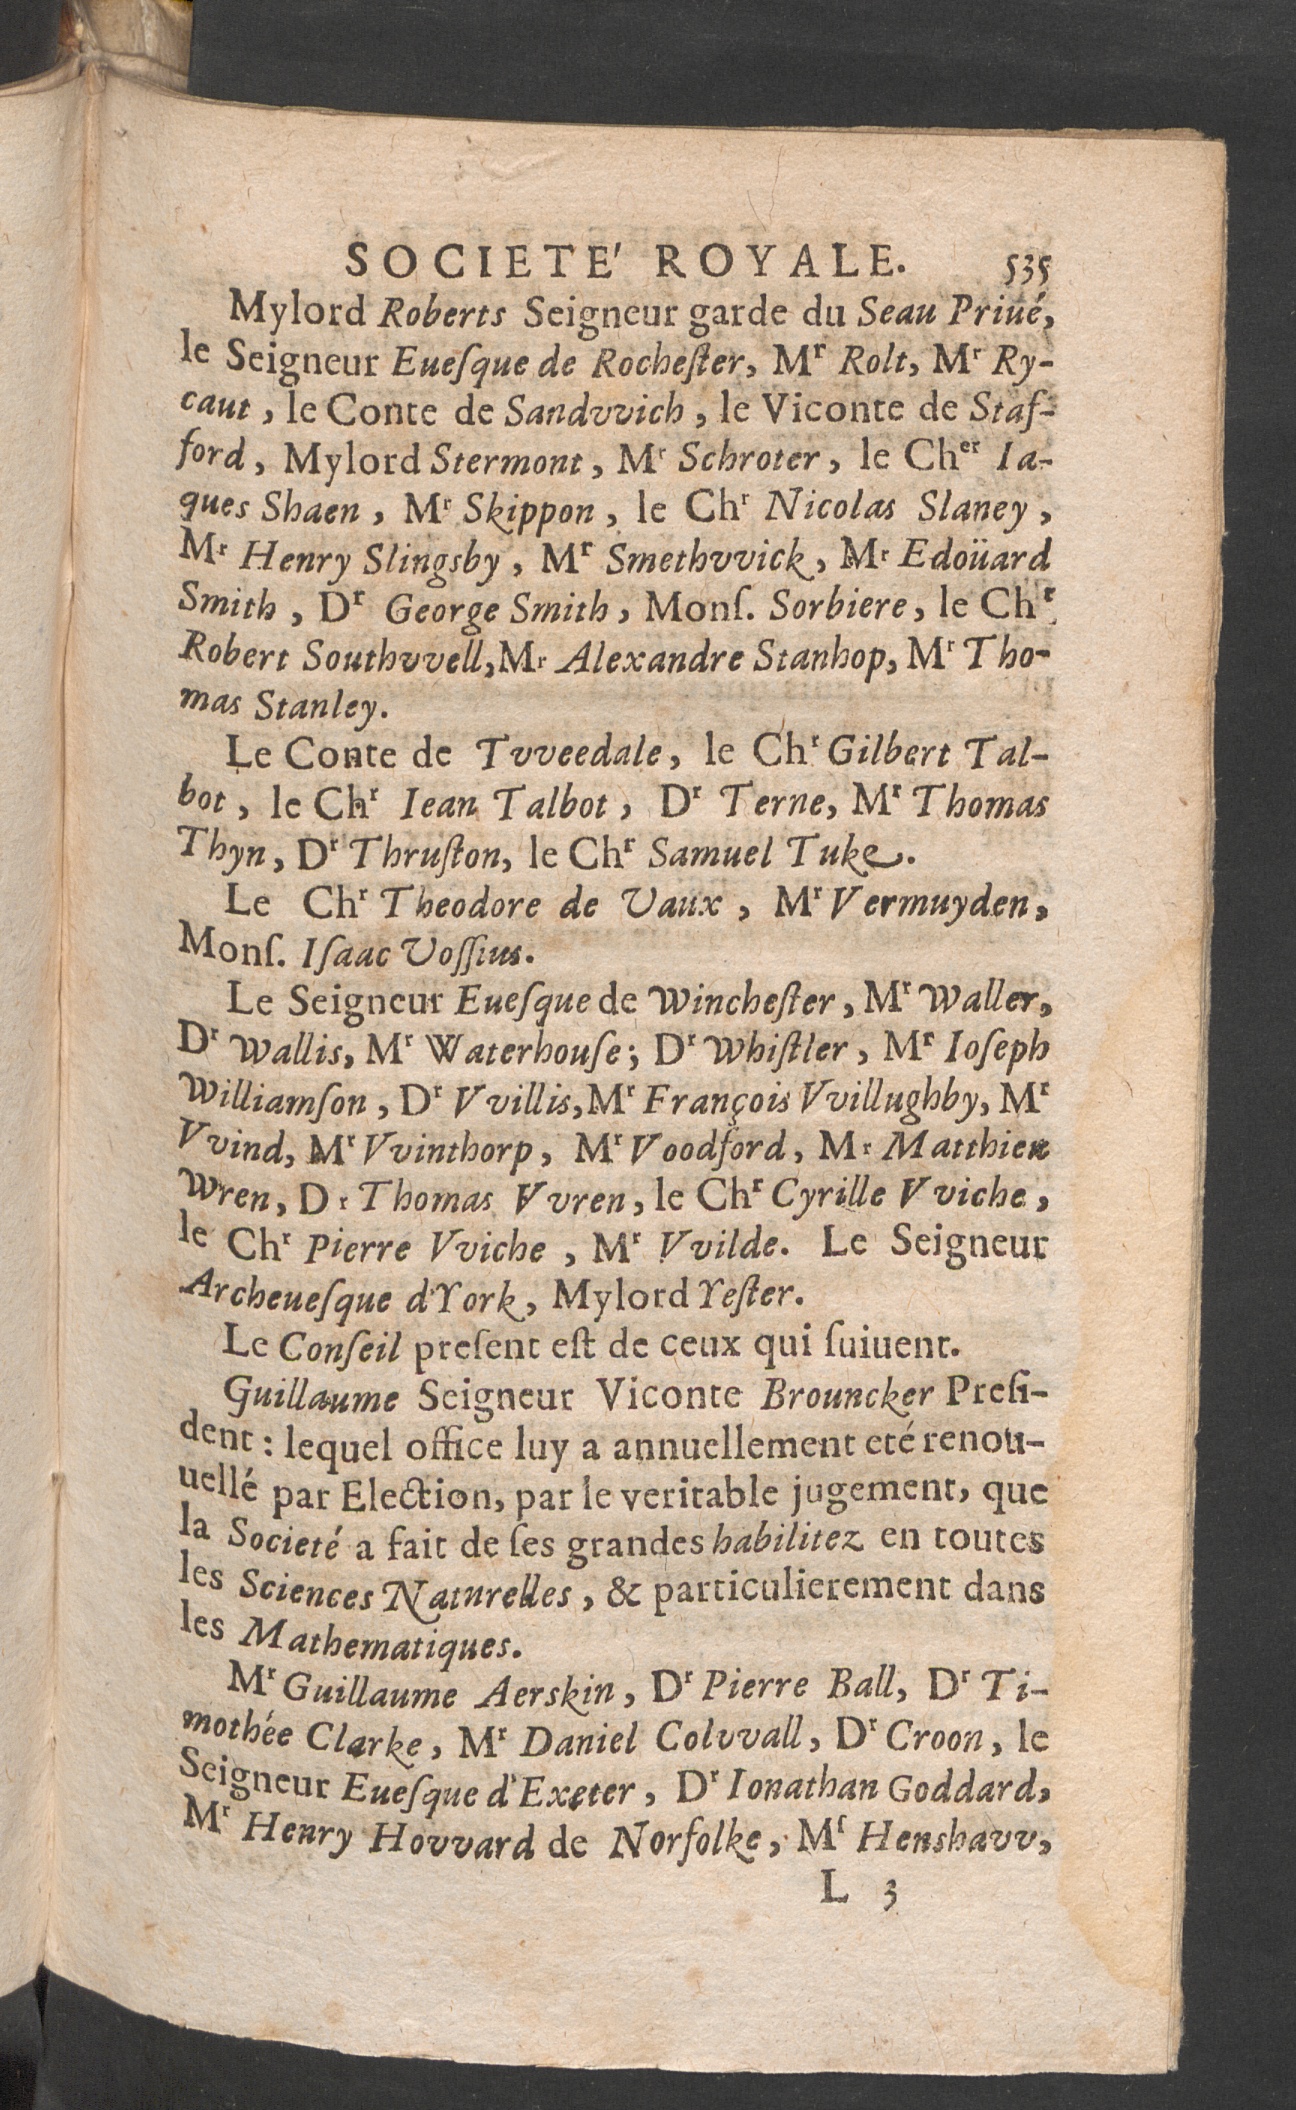 SOCIETE' ROYALE. 535
Mylord Roberts Seigneur garde du Seau Priué,
le Seigneur Eueſque de Rocheſter, Mr Rolt, Mr Ry-
caut, le Conte de Sandvvich, le Viconte de Staf-
ford, Mylord Stermont, Mr Schroter, le Cher Ia-
ques Shaen, Mr Skippon, le Chr Nicolas Slaney,
Mr Henry Slingsby, Mr Smethvvick, Mr Edoüard
Smith, Dr George Smith, Monſ. Sorbiere, le Chr
Robert Southvvell, Mr Alexandre Stanhop, Mr Tho-
mas Stanley.
Le Conte de Tvveedale, le Chr Gilbert Tal-
bot, le Chr Iean Talbot, Dr Terne, Mr Thomas
Thyn, Dr Thruſton, le Chr Samuel Tuke.
Le Chr Theodore de Vaux, Mr Vermuyden,
Monſ. Iſaac Voſſius.
Le Seigneur Eueſque de Wincheſter, Mr Waller,
Dr Wallis, Mr Waterhouſe; Dr Whiſtler, Mr Ioſeph
Williamſon, Dr Vvillis, Mr François Vvillughby, Mr
Vvind, Mr Vvinthorp, Mr Voodford, Mr Matthieu
Wren, Dr Thomas Vvren, le Chr Cyrille Vviche,
le Chr Pierre Vviche, Mr Vvilde. Le Seigneur
Archeueſque d'York, Mylord Yeſter.
Le Conſeil preſent eſt de ceux qui ſuiuent.
Guillaume Seigneur Viconte Brouncker Preſi-
dent: lequel office luy a annuellement eté renou-
uellé par Election, par le veritable jugement, que
la Societé a fait de ſes grandes habilitez en toutes
les Sciences Naturelles, & particulierement dans
les Mathematiques.
Mr Guillaume Aerskin, Dr Pierre Ball, Dr Ti-
mothée Clarke, Mr Daniel Colvvall, Dr Croon, le
Seigneur Eueſque d'Exeter, Dr Ionathan Goddard,
Mr Henry Hovvard de Norfolke, Mr Henshavv,
L 3